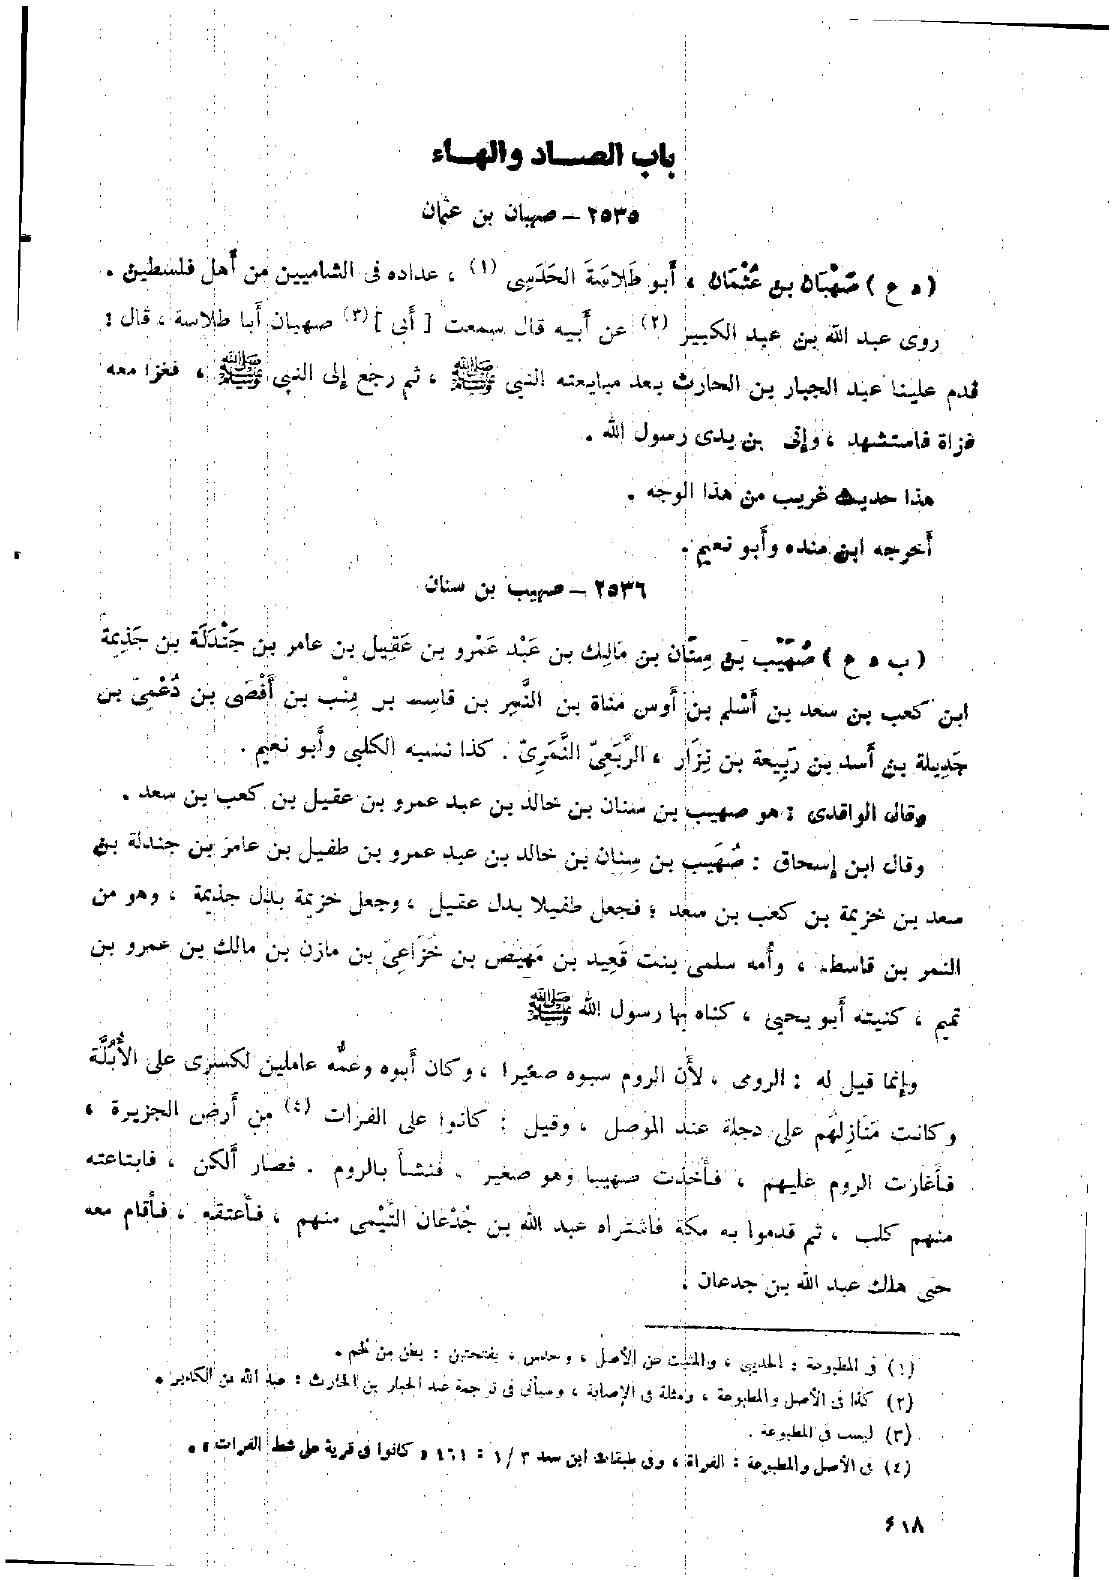 باب الصاد والهاء
٢٥٣٥ – صهبان بن عثمان
( د ع ) صُهْبَان بن عُثْمَان ، أَبو طَلاسَةَ الحَدَسِى (١) ، عداده فى الشاميين من أَهل فلسطين .
روى عبد الله بن عبد الكبير (٢) عن أَبيه قال سمعت [ أَبى ] (٣) صهبان أَبا طلاسة ، قال :
قدم علينا عبد الجبار بن الحارث بعد مبايعته النبى ﷺ ، ثم رجع إلى النبى ﷺ ، فغزا معه
غزاة فاستشهد ، وإنى بن يدى رسول الله .
هذا حديث غريب من هذا الوجه .
أَخرجه ابن منده وأَبو نعيم .
٢٥٣٦ – صهيب بن سنان
( ب د ع ) صُهَيْب بن سِنَان بن مَالِك بن عَبْد عَمْرو بن عَقِيل بن عامر بن جَنْدَلَة بن جَذِيمَة
ابن كعب بن سعد بن أَسْلم بن أَوس مَنَاة بن النَّمِر بن قاسِط بن هِنْب بن أَفْصَى بن دُعْمِىّ بن
جَدِيلة بن أَسد بن رَبِيعة بن نِزَار ، الرَّبَعِىّ النَّمَرِىّ . كذا نسبه الكلبى وأَبو نعيم .
وقال الواقدى : هو صهيب بن سنان بن خالد بن عبد عمرو بن عقيل بن كعب بن سعد .
وقال ابن إسحاق : صُهَيب بن سِنان بن خالد بن عبد عمرو بن طفيل بن عامر بن جندلة بن
سعد بن خزيمة بن كعب بن سعد ؛ فجعل طفيلا بدل عقيل ، وجعل خزيمة بدل جذيمة ، وهو من
النمر بن قاسط ، وأُمه سلمى بنت قَعِيد بن مَهِيض بن خُزَاعِىّ بن مازن بن مالك بن عمرو بن
تميم ، كنيته أَبو يحيى ، كناه بها رسول الله ﷺ
وإنما قيل له : الرومى ، لأَن الروم سبوه صغيرا ، وكان أَبوه وعمُّه عاملين لكسرى على الأُبُلَّة
وكانت مَنَازلهم على دجلة عند الموصل ، وقيل : كانوا على الفرات (٤) من أَرض الجزيرة ،
فأَغارت الروم عليهم ، فأَخذت صهيبا وهو صغير . فنشأَ بالروم . فصار أَلكن ، فابتاعته
منهم كلب ، ثم قدموا به مكة فاشتراه عبد الله بن جُدْعان التَّيْمى منهم ، فأَعتقه ، فأَقام معه
حتى هلك عبد الله بن جدعان .
(١) فى المطبوعة : الحديبى ، والمثبت من الأصل ، وحدس ، بفتحتين : بطن من لخم .
(٢) كذا فى الأصل والمطبوعة ، ومثله فى الإصابة ، وسيأتى فى ترجمة عبد الجبار بن الحارث : عبد الله بن الكدير .
(٣) ليست فى المطبوعة .
(٤) فى الأصل والمطبوعة : الفراة ، وفى طبقات ابن سعد ٣ / ١ : ١٦١ « كانوا فى قرية على شط الفرات » .
٤١٨